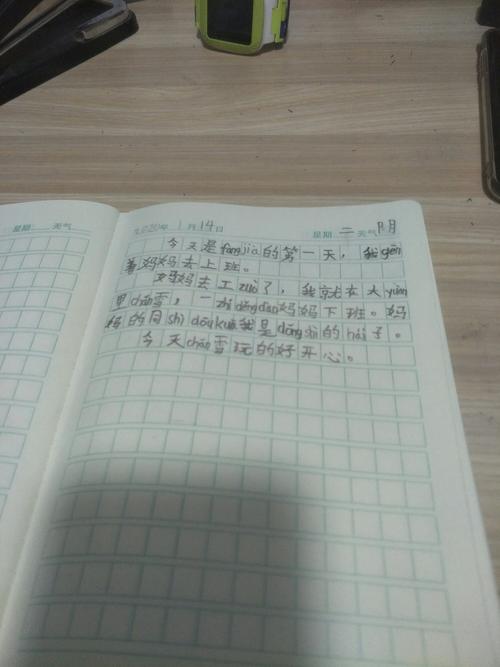 星期 天气
2020年 1月14日 星期二 天气
今天是fangjia的第一天，我gēn
着妈妈去上班。
妈妈去工zuò了，我就在大yuàn
里chǎn雪，一zhí děng dào妈妈下班。妈
妈的同shì dōu kuā我是dǒng shì的hái子。
今天chǎn雪玩的好开心。